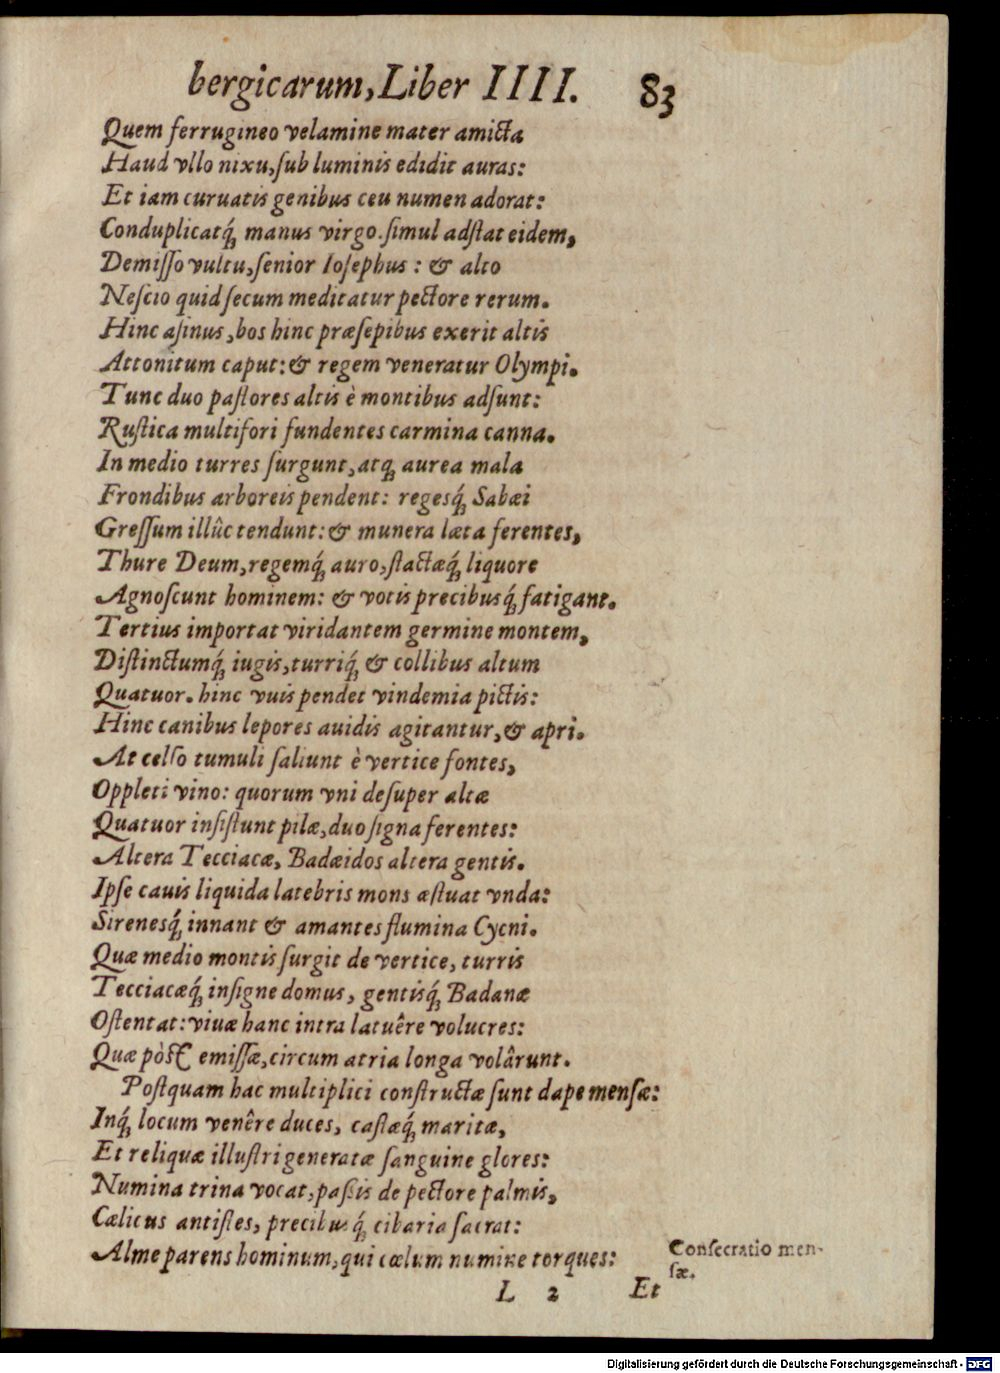 bergicarum, Liber IIII. 83
Quem ferrugineo velamine mater amicta
Haud vllo nixu, ſub luminis edidit auras:
Et iam curuatis genibus ceu numen adorat:
Conduplicatq́; manus virgo. ſimul adſtat eidem,
Demiſſo vultu, ſenior Ioſephus: & alto
Neſcio quid ſecum meditatur pectore rerum.
Hinc aſinus, bos hinc præſepibus exerit altis
Attonitum caput: & regem veneratur Olympi.
Tunc duo paſtores altis è montibus adſunt:
Ruſtica multifori fundentes carmina canna.
In medio turres ſurgunt, atq; aurea mala
Frondibus arboreis pendent: regesq́; Sabæi
Greſſum illûc tendunt: & munera læta ferentes,
Thure Deum, regemq́; auro, ſtactæq́; liquore
Agnoſcunt hominem: & votis precibusq́; fatigant.
Tertius importat viridantem germine montem,
Diſtinctumq́; iugis, turriq́; & collibus altum
Quatuor. hinc vuis pendet vindemia pictis:
Hinc canibus lepores auidis agitantur, & apri.
At celſo tumuli ſaliunt è vertice fontes,
Oppleti vino: quorum vni deſuper altæ
Quatuor inſiſtunt pilæ, duo ſigna ferentes:
Altera Tecciacæ, Badæidos altera gentis.
Ipſe cauis liquida latebris mons æſtuat vnda:
Sirenesq́; innant & amantes flumina Cycni.
Quæ medio montis ſurgit de vertice, turris
Tecciacæq́; inſigne domus, gentisq́; Badanæ
Oſtentat: viuæ hanc intra latuêre volucres:
Quæ pòſt emiſſæ, circum atria longa volârunt.
Poſtquam hac multiplici conſtructæ ſunt dape menſæ:
Inq́; locum venêre duces, caſtæq́; maritæ,
Et reliquæ illuſtri generatæ ſanguine glores:
Numina trina vocat, paſsis de pectore palmis,
Cælicus antiſtes, precibusq́; cibaria ſacrat:
Alme parens hominum, qui cœlum numine torques:
Conſecratio men-
ſæ.
L 2 Et
Digitalisierung gefördert durch die Deutsche Forschungsgemeinschaft - DFG